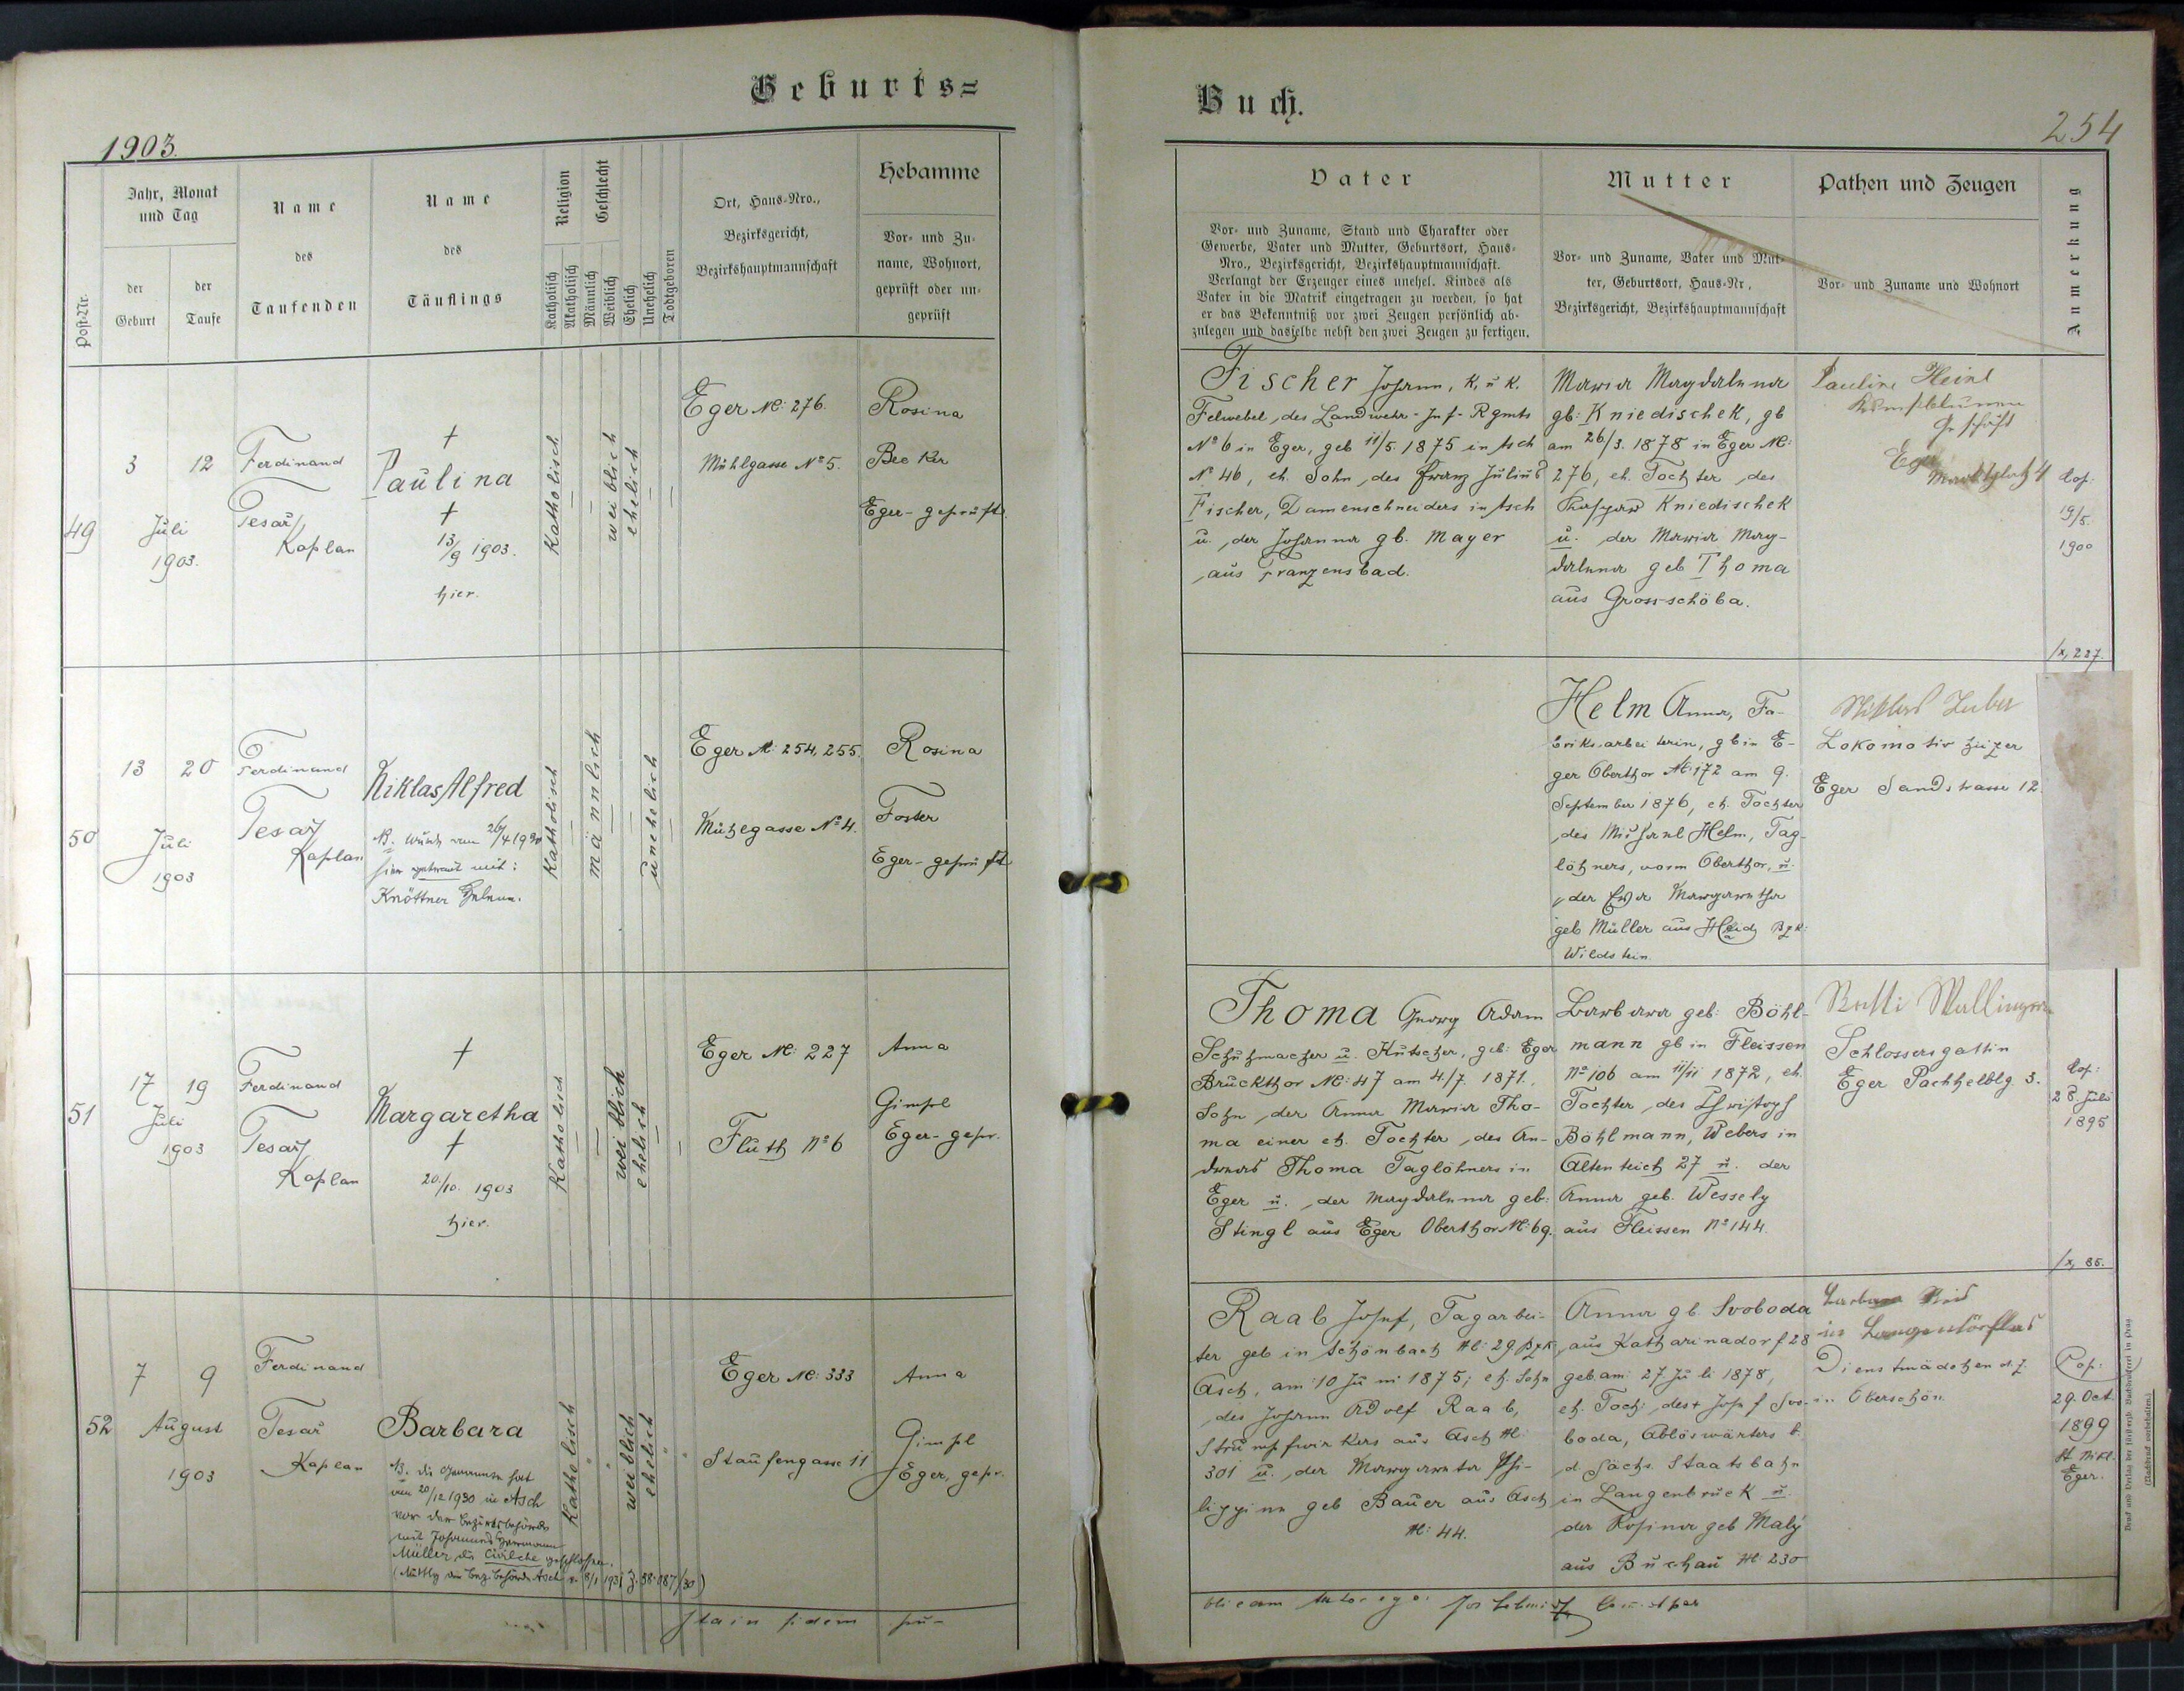 Geburts=
1903.
Post-Nr.
Jahr, Monat
und Tag
der
Geburt
der
Taufe
Name
des
Taufenden
Name
des
Täuflings
Religion
Katholisch
Akatholisch
Geschlecht
Männlich
Weiblich
Ehelich
Unehelich
Todtgeboren
Ort, Haus-Nro.,
Bezirksgericht,
Bezirkshauptmannschaft
Hebamme
Vor- und Zu-
name, Wohnort,
geprüft oder un-
geprüft
49
3 12
Juli
1903.
Ferdinand
Tesař
Kaplan
†
Paulina
†
13/9 1903.
hier.
Katholisch
—
—
weiblich
ehelich
—
—
Eger Nc: 276.
Mühlgasse No 5.
Rosina
Becker
Eger-geprüft.
50
13 20
Juli
1903
Ferdinand
Tesař
Kaplan
Niklas Alfred
NB. wurde am 26/4 1930
hier getraut mit:
Knöttner Helene.
Katholisch
—
männlich
—
—
unehelich
—
Eger Nc: 254, 255.
Mühlgasse No 4.
Rosina
Foster
Eger-geprüft
51
17 19
Juli
1903
Ferdinand
Tesař
Kaplan
†
Margaretha
†
20/10. 1903
hier.
Katholisch
—
—
weiblich
ehelich
—
—
Eger Nc: 227
Fluth No 6
Anna
Gimpl
Eger-gepr.
52
7 9
August
1903
Ferdinand
Tesař
Kaplan
Barbara
NB. die Genannte hat
am 20/12 1930 in Asch
vor der Bezirksbehörde
mit Johannes Hermann
Müller die Civilehe geschlossen.
(Mittlg der Bez. behörde Asch v. 8/1 1931 Z. 38.187/30)
Katholisch
"
"
weiblich
ehelich
"
"
Eger Nc: 333
Staufengasse 11
Anna
Gimpl
Eger, gepr.
Ita in fidem pu-
Buch.
254
Vater
Vor- und Zuname, Stand und Charakter oder
Gewerbe, Vater und Mutter, Geburtsort, Haus-
Nro., Bezirksgericht, Bezirkshauptmannschaft.
Verlangt der Erzeuger eines unehel. Kindes als
Vater in die Matrik eingetragen zu werden, so hat
er das Bekenntniß vor zwei Zeugen persönlich ab-
zulegen und dasselbe nebst den zwei Zeugen zu fertigen.
Mutter
Vor- und Zuname, Vater und Mut-
ter, Geburtsort, Haus-Nr,
Bezirksgericht, Bezirkshauptmannschaft
Pathen und Zeugen
Vor- und Zuname und Wohnort
Anmerkung
Fischer Johann, K. u K.
Felwebel des Landwehr-Inf-Rgmts
No 6 in Eger, geb 11/5. 1875 in Asch
No 46, eh. Sohn des Franz Julius
Fischer, Damenschneiders in Asch
u. der Johanna gb. Mayer
aus Franzensbad.
Maria Magdalena
gb: Kniedischek, gb
am 26/3. 1878 in Eger Nc:
276, eh. Tochter des
Kniedischek
u. der Maria Mag-
dalena geb Thoma
aus Grossschöba.
Pauline Heinl
Kunstblumen
Geschäft
Eger
Marktplatz 4
Cop:
19/5.
1900
IX, 227.
Helm Anna, Fa-
briksarbeiterin, gb in E-
ger Oberthor Nc: 172 am 9.
September 1876, eh. Tochter
des Michael Helm, Tag-
löhners, vorm Oberthor, u.
der Eva Margaretha
geb Müller aus Haid Bzk:
Wildstein.
Niklas
Lokomotivheizer
Eger Sandstrasse 12.
Thoma Georg Adam
Schuhmacher u. Kutscher, geb: Eger
Bruckthor Nc: 47 am 4./7. 1871.,
Sohn der Anna Maria Tho-
ma einer eh. Tochter des An-
dreas Thoma Taglöhners in
Eger u. der Magdalena geb:
Stingl aus Eger Oberthor Nc: 69.
Barbara geb: Böhl-
mann gb in Fleissen
No 106 am 11/11 1872, eh.
Tochter des Christoph
Böhlmann, Webers in
Altenteich 27 u. der
Anna geb. Wessely
aus Fleissen No 144.
Schlossersgattin
Eger Pachhelblg 3.
Cop:
28. Juli
1895
IX, 85.
Raab Josef, Tagarbei-
ter geb in Schönbach Nc: 29 Bzk
Asch, am 10 Juni 1875; eh. Sohn
des Johann Adolf Raab,
Strumpfwirkers aus Asch Nc:
301 u. der Margareta Phi-
lippine geb Bauer aus Asch
Nc: 44.
Anna gb. Svoboda
aus Katharinadorf 28
geb am 27 Juli 1878,
eh. Toch. des + Josef Svo-
boda, Ablöswärters k.
d. Sächs. Staatsbahn
in Langenbruck u.
der Rosina geb Malý
aus Buchau Nc: 230
Barbara
in
Dienstmädchen d. Z.
in Oberschön.
Cop:
29. Oct.
1899
St. Nikl.
Eger.
Druck und Verlag der fürsterzb. Buchdruckerei in Prag
(Nachdruck vorbehalten.)